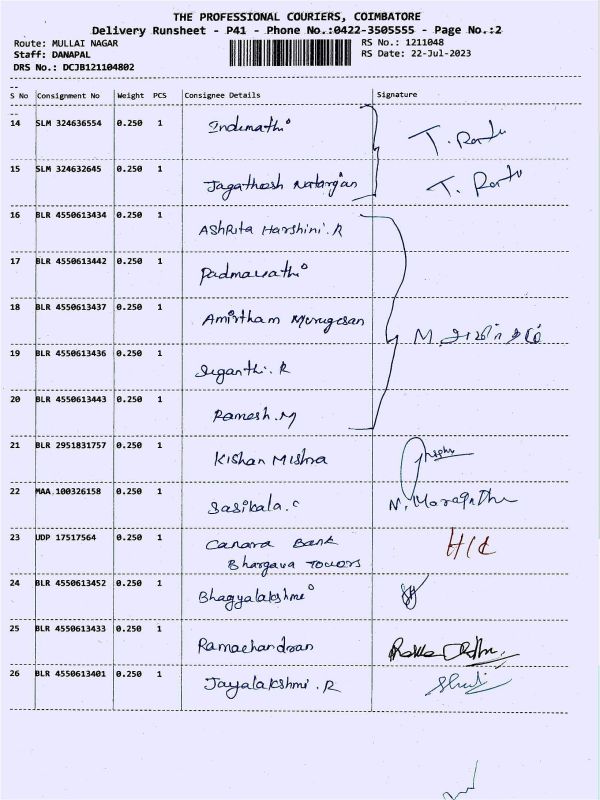 THE PROFESSIONAL COURIERS, COIMBATORE
Delivery Runsheet - P41 - Phone No.:0422-3505555 - Page No.:2
Route: MULLAI NAGAR RS No.: 1211048
Staff: DANAPAL RS Date: 22-Jul-2023
DRS No.: DCJB121104802
--
S No Consignment No Weight PCS Consignee Details Signature
--
14 SLM 324636554 0.250 1 Indumathi
15 SLM 324632645 0.250 1 Jagatheesh Natarajan
16 BLR 4550613434 0.250 1 Ashrita Harshini.R
17 BLR 4550613442 0.250 1 Padmavathi
18 BLR 4550613437 0.250 1 Amirtham Murugesan
19 BLR 4550613436 0.250 1 Suganthi.R
20 BLR 4550613443 0.250 1 Ramesh.M
21 BLR 2951831757 0.250 1 Kishan Mishra
22 MAA.100326158 0.250 1 Sasikala.C
23 UDP 17517564 0.250 1 Canara Bank H/C
Bhargava Towers
24 BLR 4550613452 0.250 1 Bhagyalakshmi
25 BLR 4550613433 0.250 1 Ramachandran
26 BLR 4550613401 0.250 1 Jayalakshmi.R